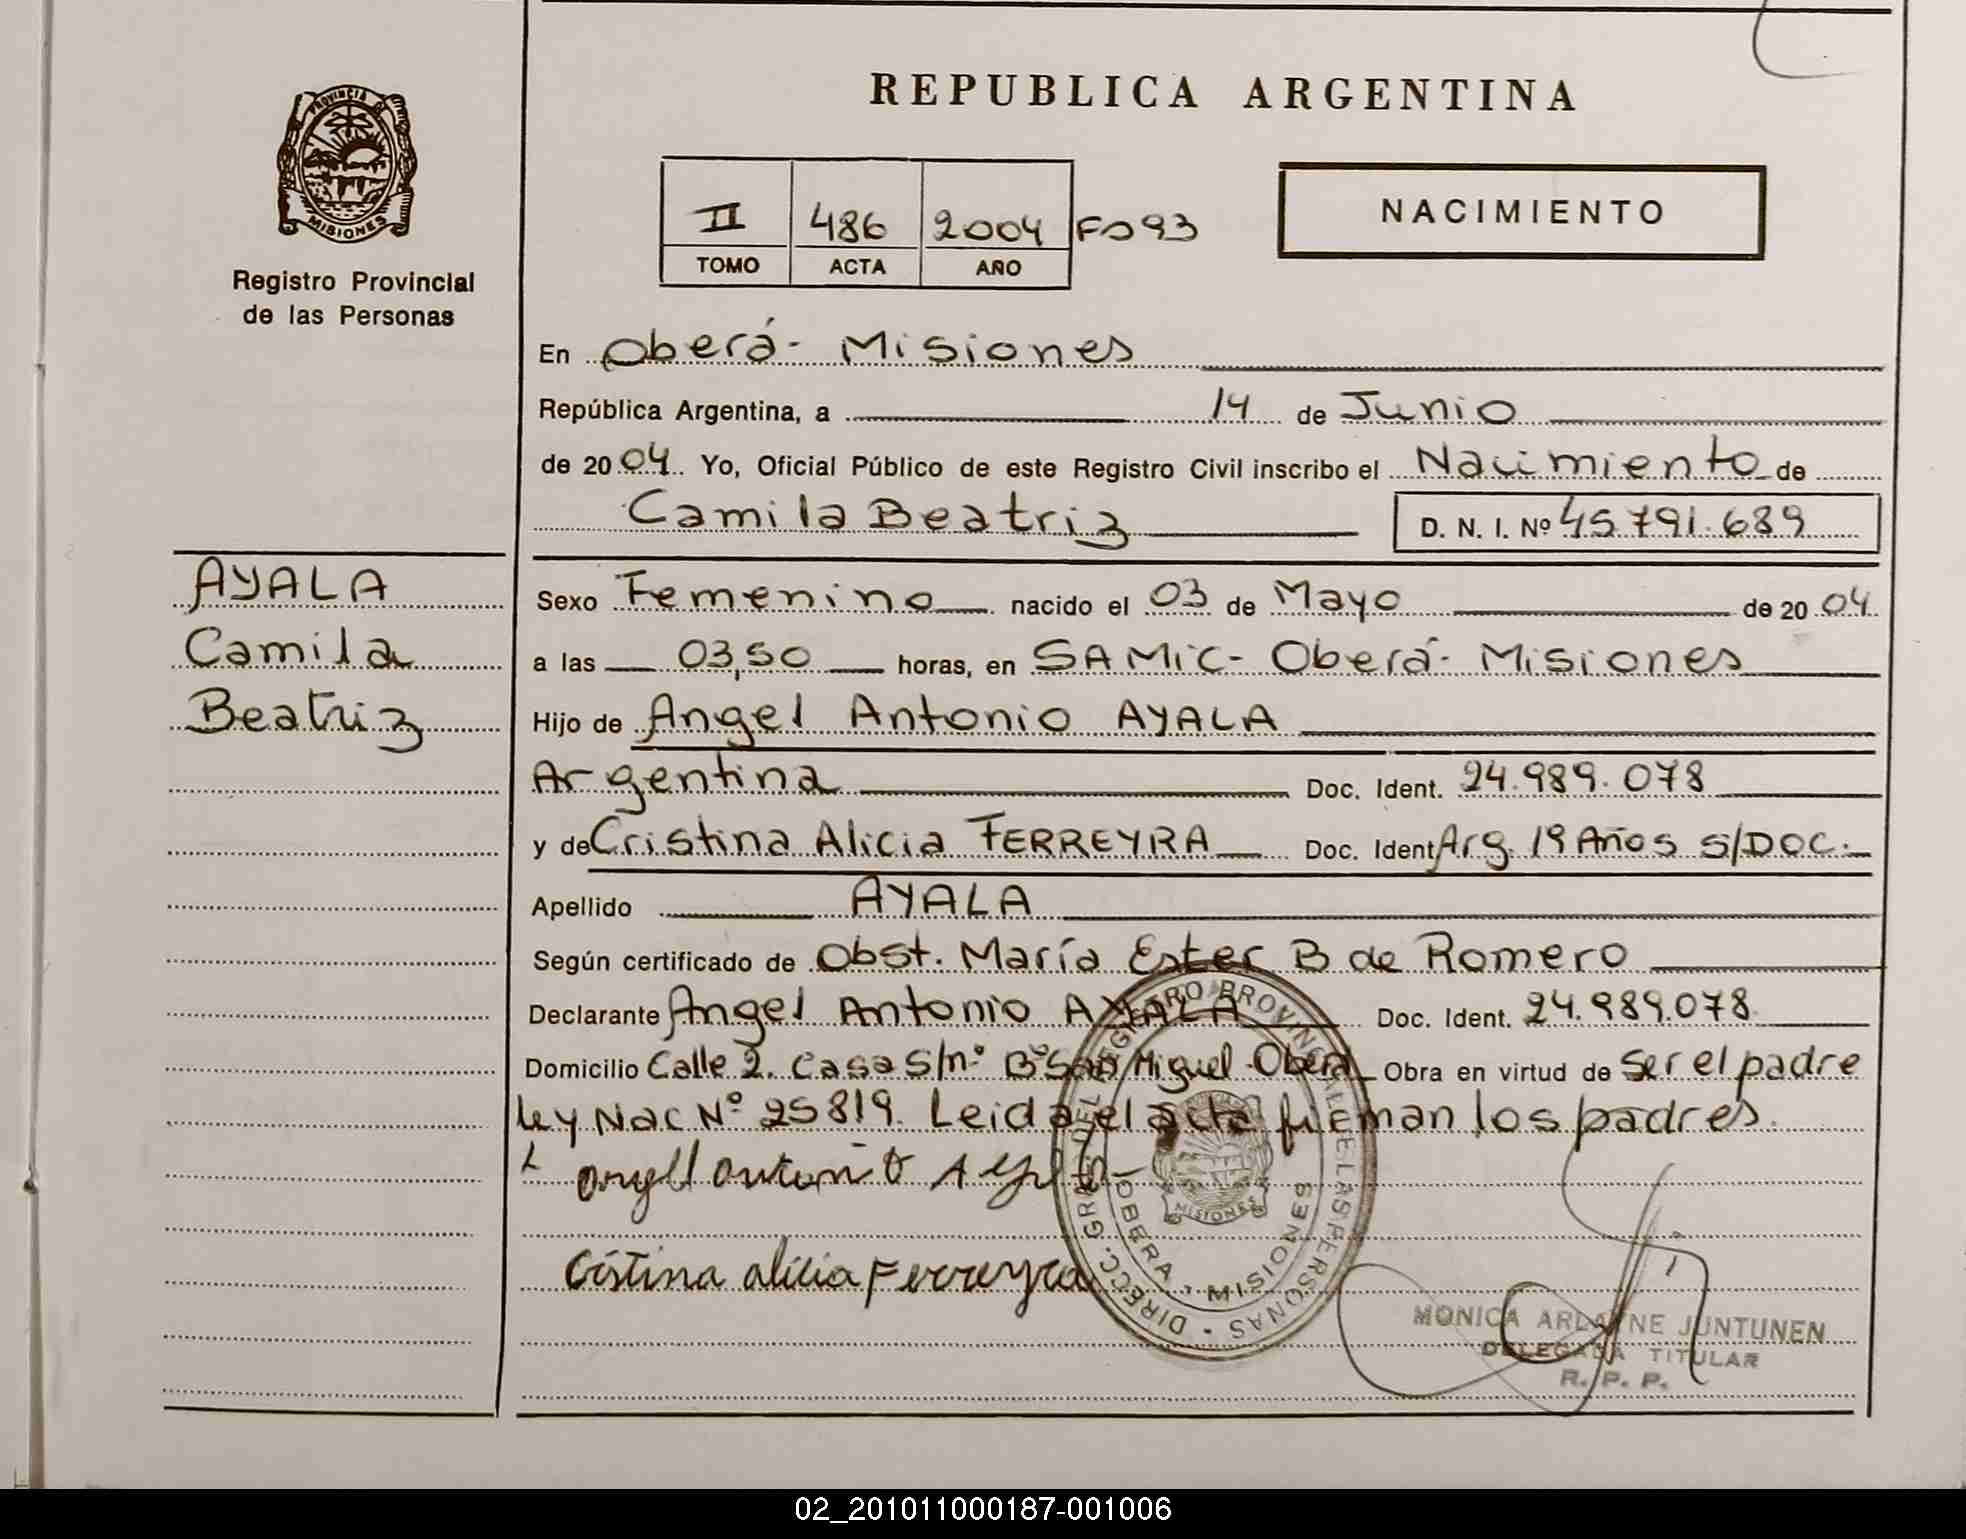 REPUBLICA ARGENTINA
PROVINCIA DE
MISIONES
Registro Provincial
de las Personas
II 486 2004 Fo 93
TOMO ACTA AÑO
NACIMIENTO
En Oberá - Misiones
República Argentina, a 14 de Junio
de 2004 Yo, Oficial Público de este Registro Civil inscribo el Nacimiento de
Camila Beatriz D. N. I. Nº 45.791.689
AYALA
Camila
Beatriz
Sexo Femenino nacido el 03 de Mayo de 2004
a las 03,50 horas, en SAMIC - Oberá - Misiones
Hijo de Angel Antonio AYALA
Argentina Doc. Ident. 24.989.078
y de Cristina Alicia FERREYRA Doc. Ident Arg. 19 Años S/DOC.-
Apellido AYALA
Según certificado de Obst. María Ester B de Romero
Declarante Angel Antonio AYALA Doc. Ident. 24.989.078
Domicilio Calle 2. Casa S/nº Bº San Miguel - Oberá Obra en virtud de Ser el padre
Ley Nac Nº 25819. Leida el acta firman los padres.
Angel Antonio Ayala
Cistina alicia Ferreyra
DIRECC. GRAL. DEL REGISTRO PROVINCIAL DE LAS PERSONAS
OBERA - MISIONES
MISIONES
MONICA ARLAYNE JUNTUNEN
DELEGADA TITULAR
R. P. P.
02_201011000187-001006